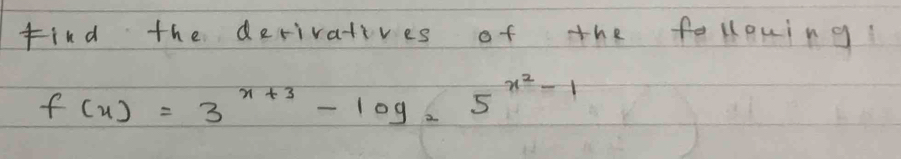 Find the derivatives of the following:
f(x) = 3^{x+3} - log_2 5^{x^2-1}